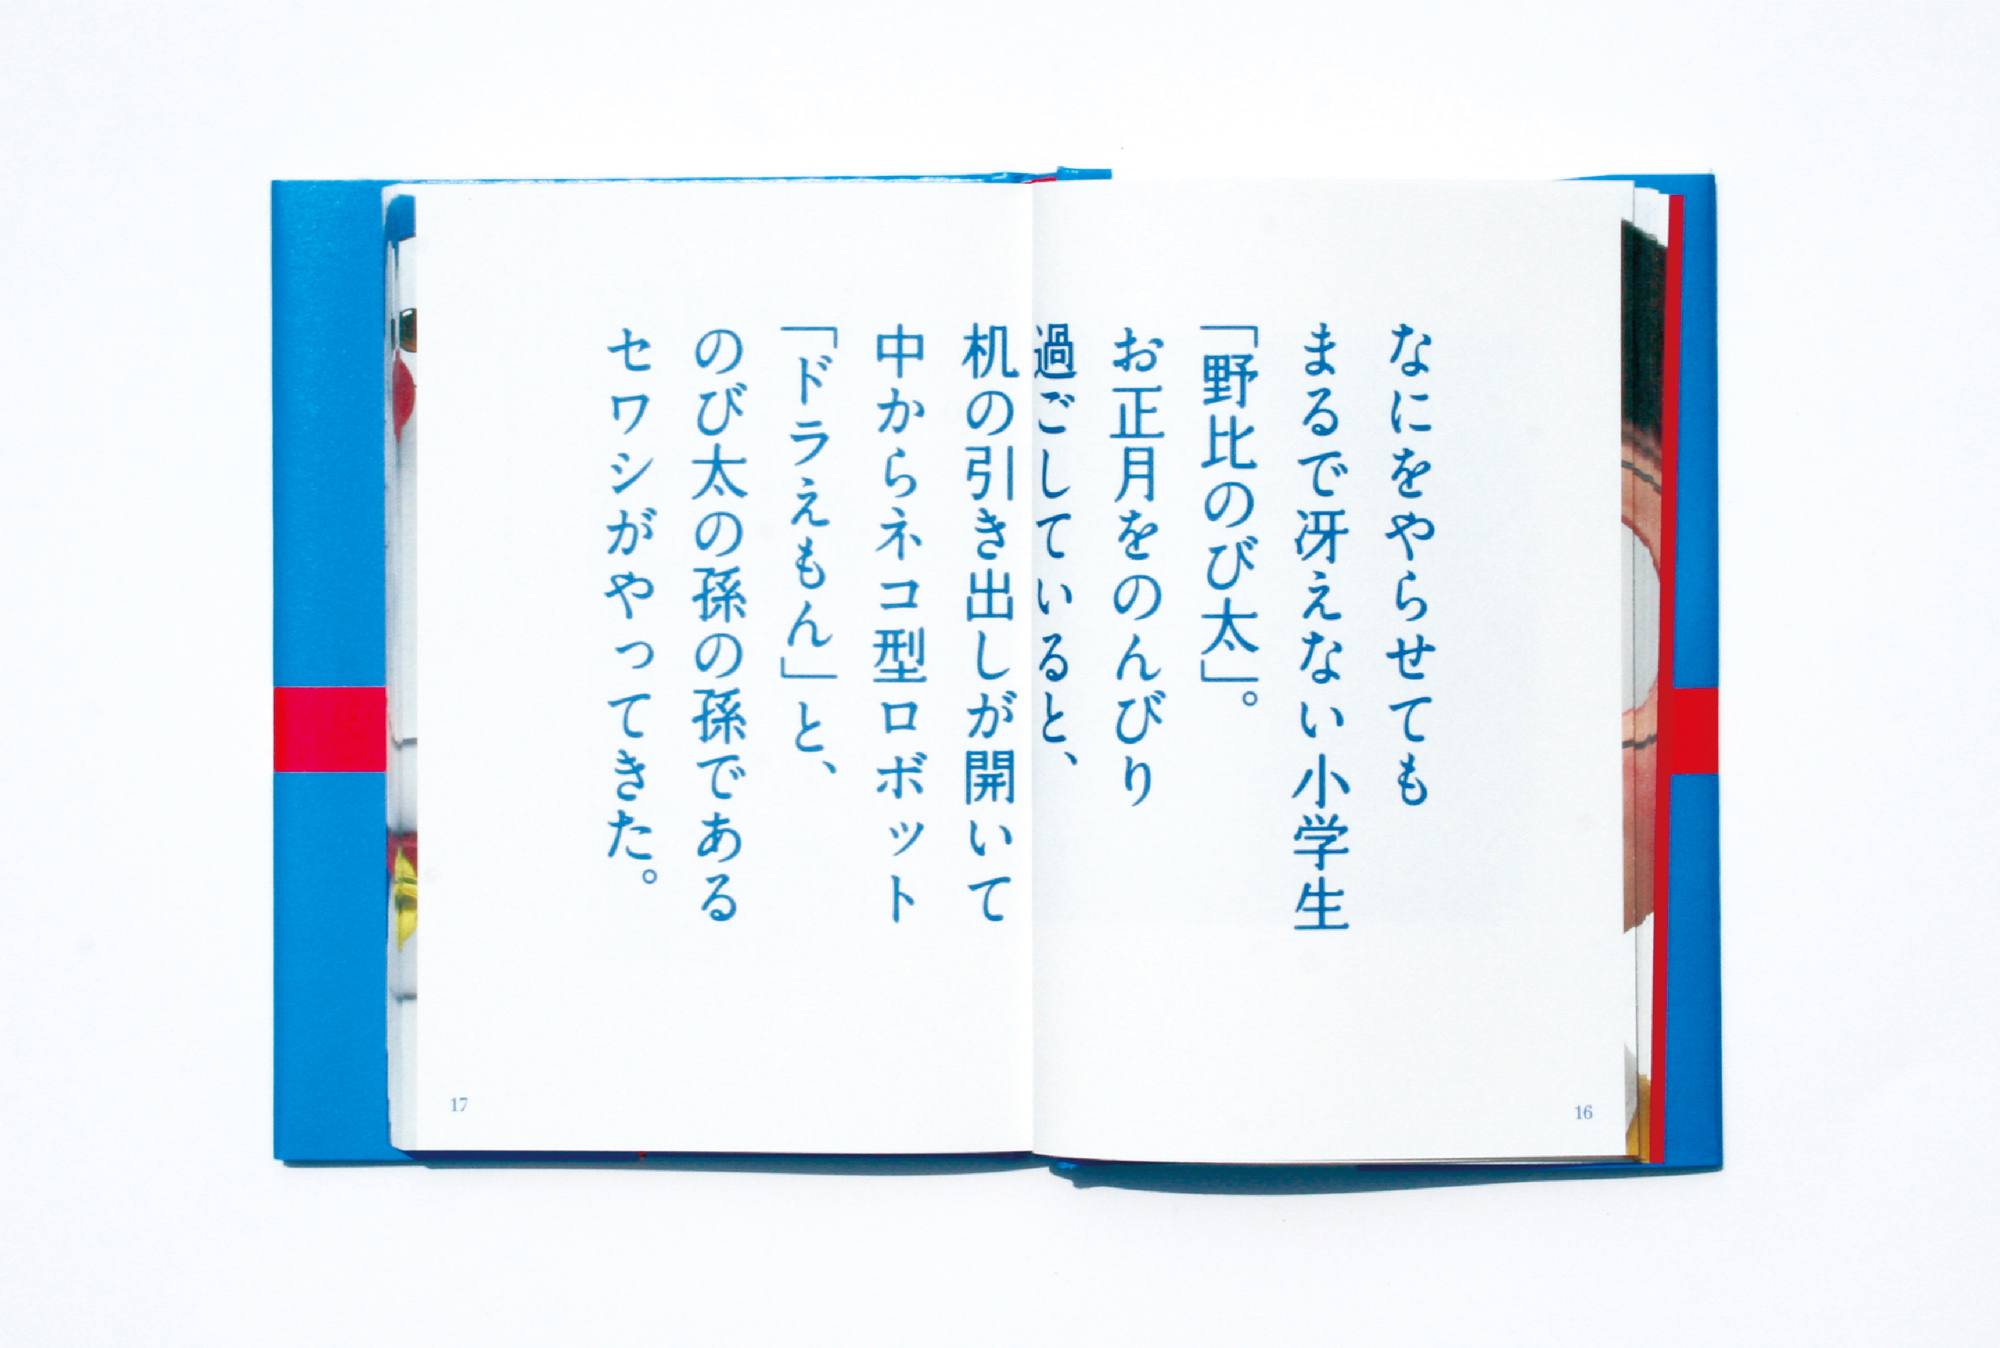 なにをやらせても
まるで冴えない小学生
「野比のび太」。
お正月をのんびり
過ごしていると、
机の引き出しが開いて
中からネコ型ロボット
「ドラえもん」と、
のび太の孫の孫である
セワシがやってきた。
16
17